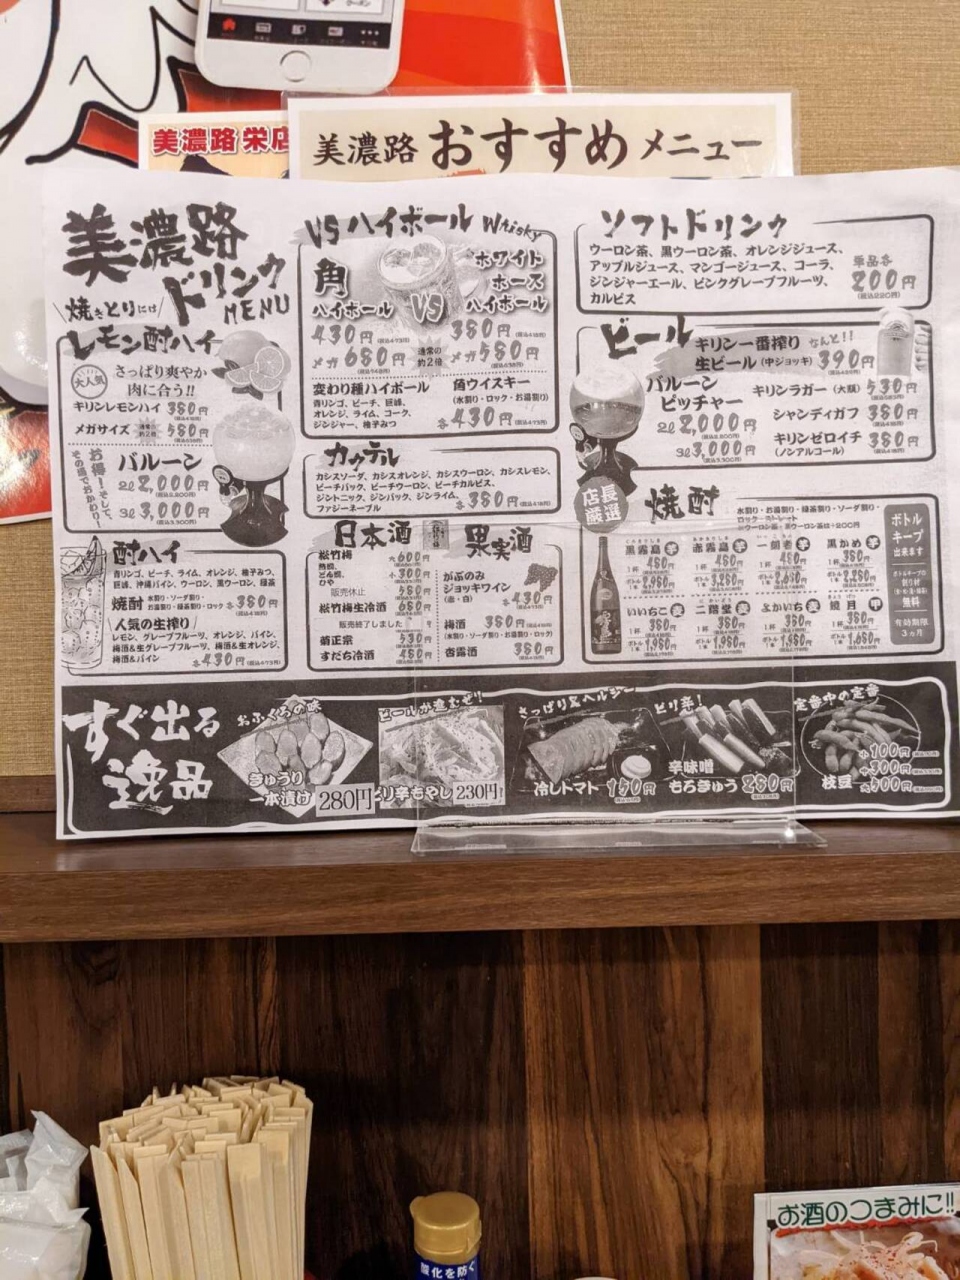 美濃路 栄店
美濃路 おすすめ メニュー
美濃路
ドリンク
MENU
焼きとりにけ
レモン酎ハイ
大人気
さっぱり爽やか
肉に合う!!
キリンレモンハイ 380円
メガサイズ 通常の約2倍 580円
お得!そして、
その場でおかわり!
バルーン
2ℓ 2,000円
3ℓ 3,000円
酎ハイ
青リンゴ、ピーチ、ライム、オレンジ、柚子みつ、
巨峰、沖縄パイン、ウーロン、黒ウーロン、緑茶
焼酎 (水割り・ソーダ割り・
お湯割り・緑茶割り・ロック 各380円
人気の生搾り
レモン、グレープフルーツ、オレンジ、パイン、
梅酒&生グレープフルーツ、梅酒&生オレンジ、
梅酒&パイン 各430円
VS ハイボール Whisky
角
ハイボール
430円
メガ 680円
VS
通常の
約2倍
ホワイト
ホース
ハイボール
380円
メガ 580円
変わり種ハイボール
青リンゴ、ピーチ、巨峰、
オレンジ、ライム、コーク、
ジンジャー、柚子みつ
角ウイスキー
(水割り・ロック・お湯割り)
各430円
カクテル
カシスソーダ、カシスオレンジ、カシスウーロン、カシスレモン、
ピーチバック、ピーチウーロン、ピーチカルピス、
ジントニック、ジンバック、ジンライム、
ファジーネーブル 各380円
日本酒
松竹梅 大600円
熱燗、
どん燗、
ひや 小300円
販売休止 580円
松竹梅生冷酒 680円
販売終了しました
菊正宗 530円
すだち冷酒 480円
果実酒
がぶのみ
ジョッキワイン
(赤・白) 各430円
梅酒 380円
(水割り・ソーダ割り・お湯割り・ロック)
杏露酒 380円
ソフトドリンク
ウーロン茶、黒ウーロン茶、オレンジジュース、
アップルジュース、マンゴージュース、コーラ、
ジンジャーエール、ピンクグレープフルーツ、
カルピス
単品各
200円
(税込220円)
ビール
キリン一番搾り なんと!!
生ビール(中ジョッキ) 390円
バルーン
ピッチャー
2ℓ 2,000円
3ℓ 3,000円
キリンラガー (大瓶) 530円
シャンディガフ 380円
キリンゼロイチ
(ノンアルコール) 380円
店長
厳選
焼酎
水割り・お湯割り・緑茶割り・ソーダ割り・
ロック・ストレート
黒霧島 芋
赤霧島 芋
一刻者 芋
黒かめ 芋
いいちこ 麦
二階堂 麦
よかいち 麦
鏡月 甲
ボトル
キープ
出来ます
ボトルキープの
割り材
無料
有効期限
3ヵ月
すぐ出る
逸品
おふくろの味
きゅうり
一本漬け 280円
ビールが進むぜ!
ピリ辛もやし 230円
さっぱり&ヘルシー
冷しトマト 150円
ピリ辛!
辛味噌
もろきゅう 280円
定番中の定番
枝豆
小100円
中300円
大500円
酸化を防ぐ
お酒のつまみに!!